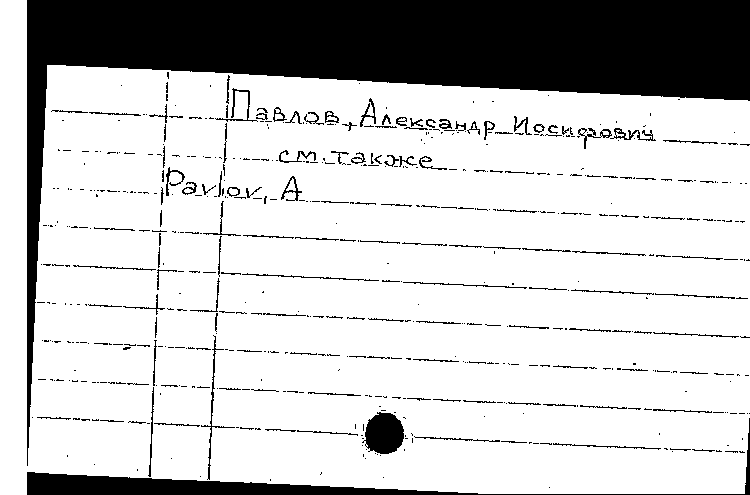 Павлов, Александр Иосифович
см. также
Pavlov, A